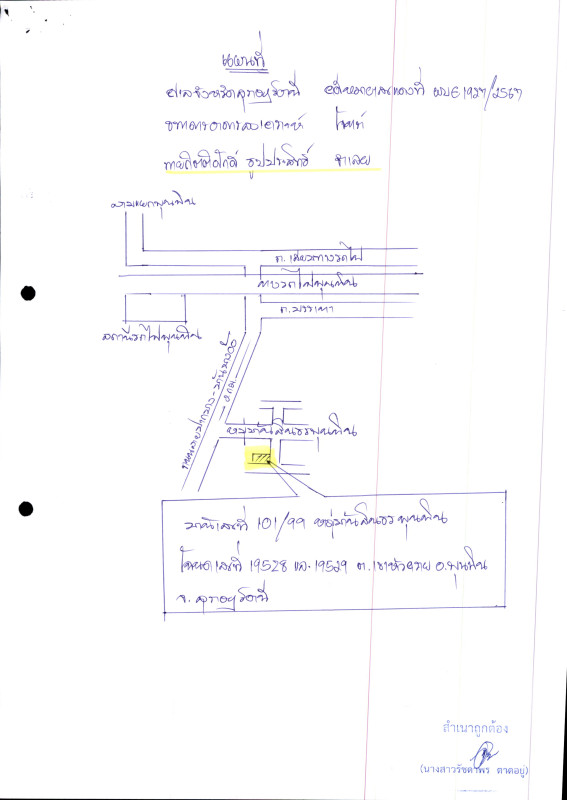 แผนที่
ศาลจังหวัดสุราษฎร์ธานี คดีหมายเลขแดงที่ ผบE 1927/2567
ธนาคารอาคารสงเคราะห์ โจทก์
นายกิตติศักดิ์ ธูปประสิทธิ์ จำเลย
สามแยกพุนพิน
ถ.เลียบทางรถไฟ
ทางรถไฟพุนพิน
ถ.
สถานีรถไฟพุนพิน
หมู่บ้านสินธรพุนพิน
บ้านเลขที่ 101/99 หมู่บ้านสินธร พุนพิน
โฉนดเลขที่ 19528 และ 19529 ต.เขาหัวควาย อ.พุนพิน
จ. สุราษฎร์ธานี
สำเนาถูกต้อง
(นางสาวรัชดาพร ตาดอยู่)